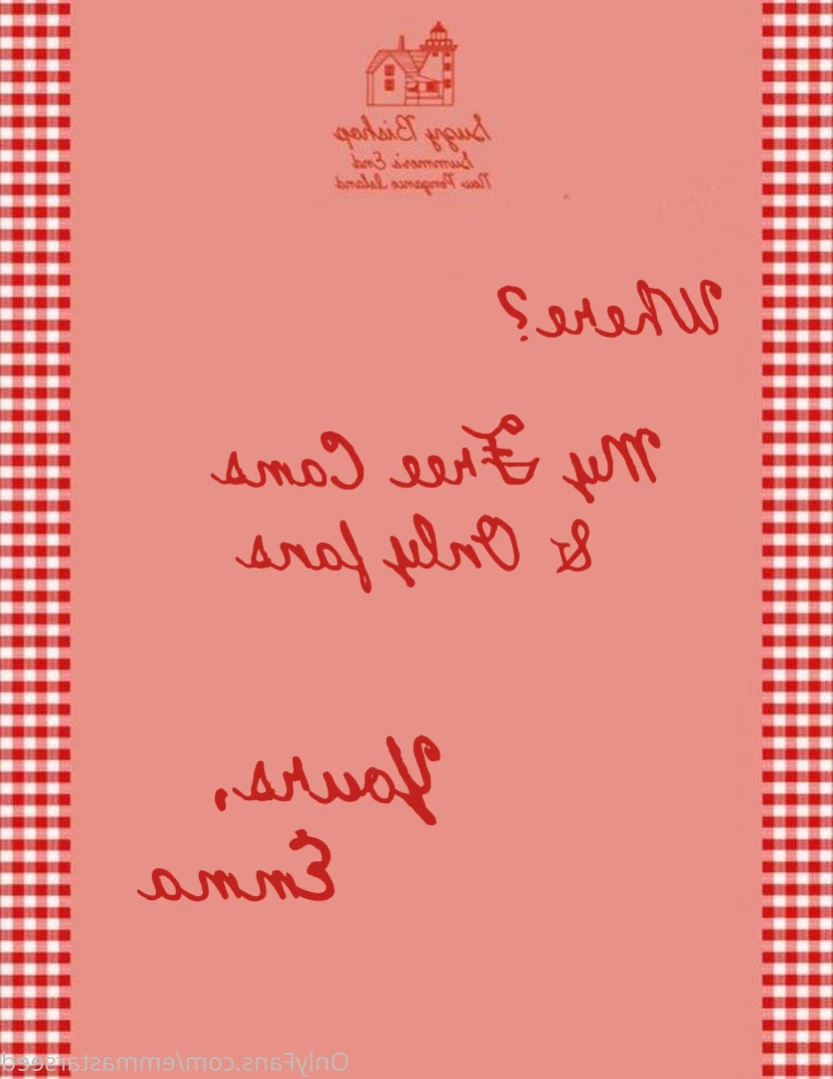 Suzy Bishop
Summer's End
New Penzance Island
Where?
My Free Cams
& Only fans
Yours,
Emma
OnlyFans.com/emmastarseed